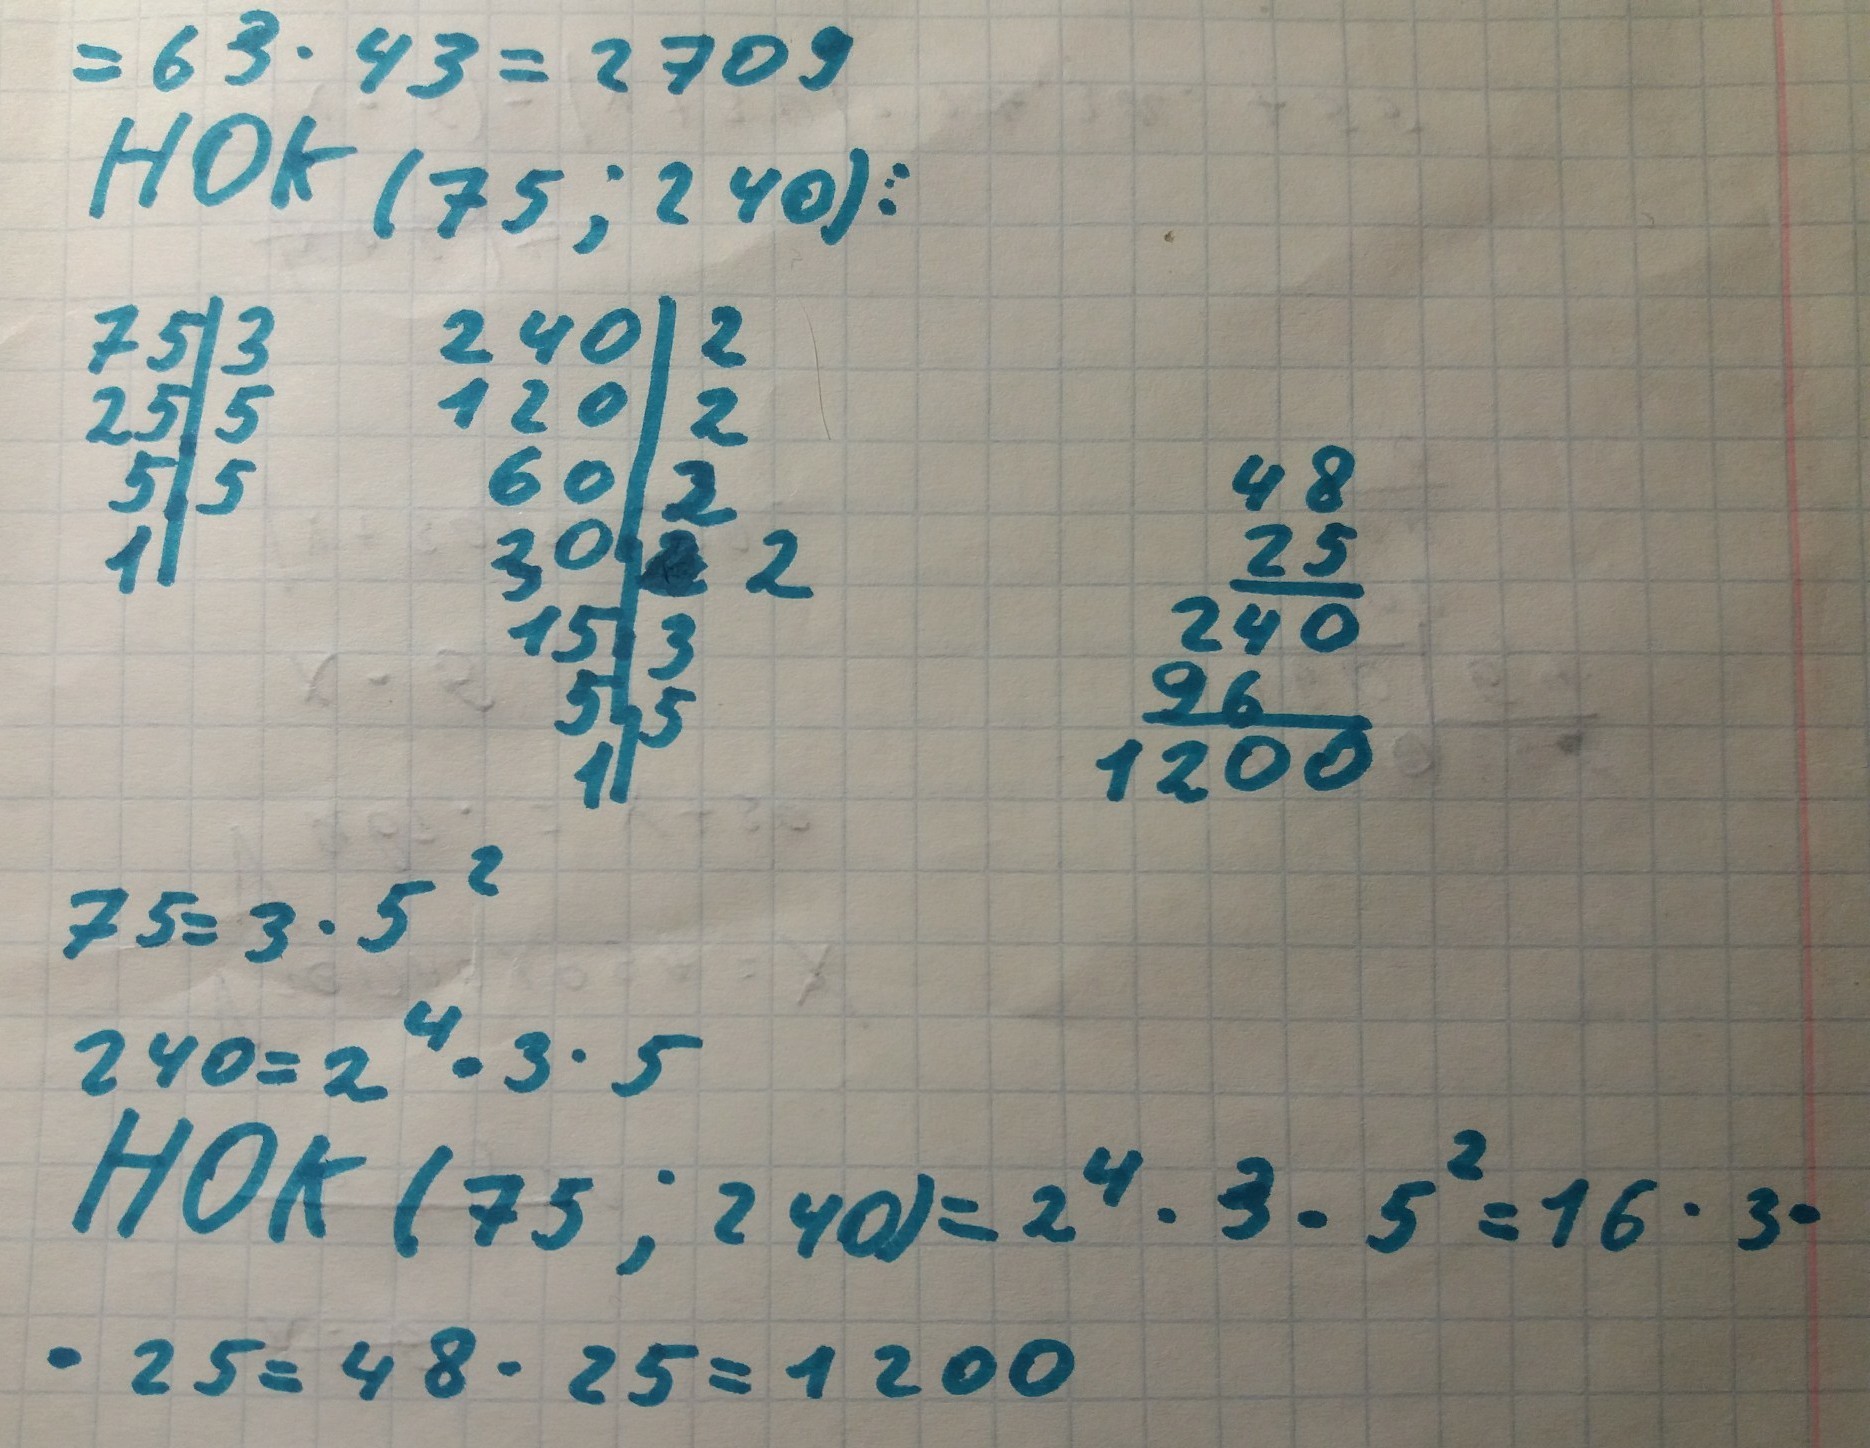 = 63 · 43 = 2709
НОК (75 ; 240):
75|3
25|5
5|5
1|
240|2
120|2
60|2
30|2 2
15|3
5|5
1|
48
25
240
96
1200
75 = 3 · 5²
240 = 2⁴ · 3 · 5
НОК (75 ; 240) = 2⁴ · 3 · 5² = 16 · 3 ·
· 25 = 48 · 25 = 1200